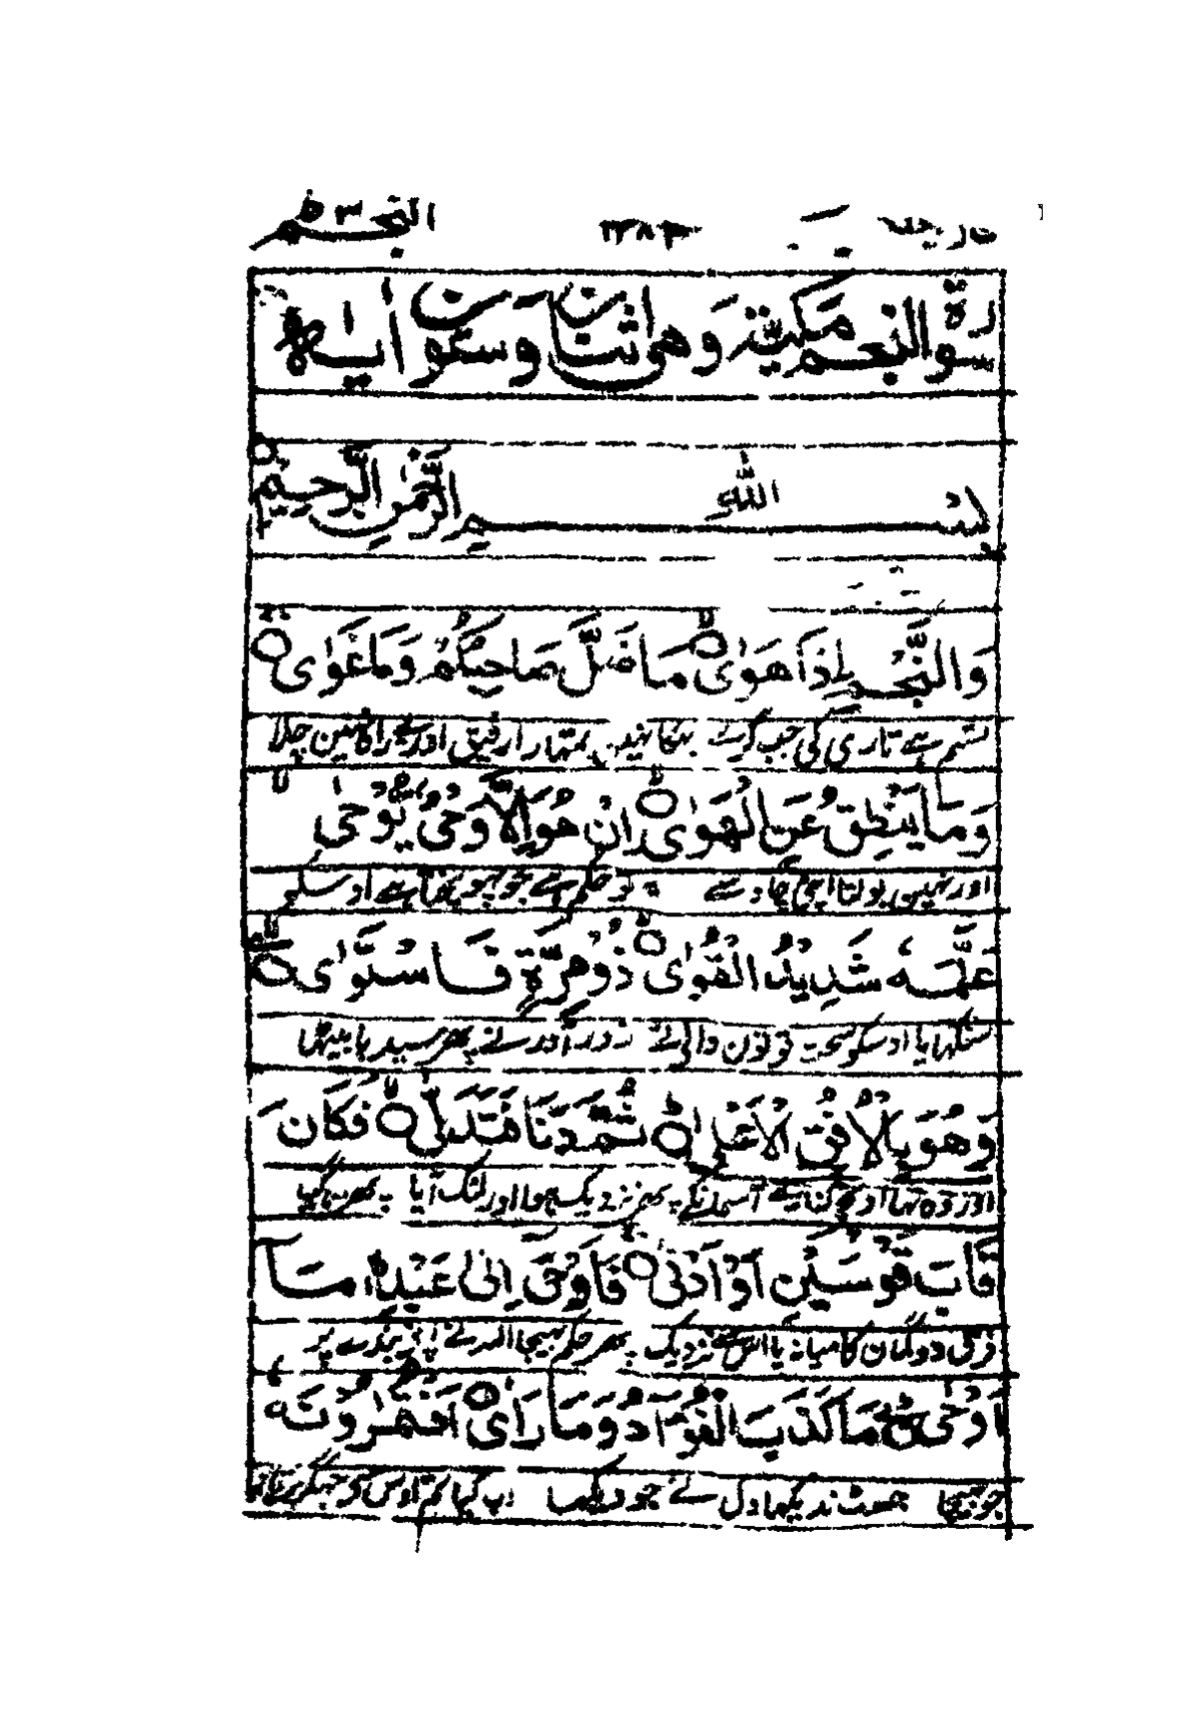 النجم ٥٣
سورة والنجم مكية وهي اثنان وستون أية
بسم الله الرحمن الرحيم
وَالنَّجْمِ إِذَا هَوٰى مَا ضَلَّ صَاحِبُكُمْ وَمَا غَوٰى
قسم ہے تاری کی جب گرے بہکا نہین تمہارا رفیق اور بے راہ نہین چلا
وَمَا يَنْطِقُ عَنِ الْهَوٰى اِنْ هُوَ اِلَّا وَحْيٌ يُّوْحٰى
اور نہین بولتا اپنی چاو سے یہ تو حکم ہے جو پہونچتا ہے اوسکو
عَلَّمَهٗ شَدِيْدُ الْقُوٰى ذُوْ مِرَّةٍ فَاسْتَوٰى
سکہایا اوسکو سخت قوتون والے نے زور آور نے پھر سیدہا بیٹھا
وَهُوَ بِالْاُفُقِ الْاَعْلٰى ثُمَّ دَنَا فَتَدَلّٰى فَكَانَ
اور وہ تہا اونچے کنارے آسمان کے پھر نزدیک ہوا اور لٹک آیا پھر رہ گیا
قَابَ قَوْسَيْنِ اَوْ اَدْنٰى فَاَوْحٰى اِلٰى عَبْدِهٖ مَآ
فرق دو کمان کا میانہ یا اس سے نزدیک پھر حکم بھیجا اللہ نے اپنے بندے پر
اَوْحٰى مَا كَذَبَ الْفُؤَادُ وَمَا رَاٰى اَفَتُمٰرُوْنَهٗ
جو بھیجا جھوٹ ندیکھا دل نے جو دیکھا اب کیا تم اوس سے جھگڑتے